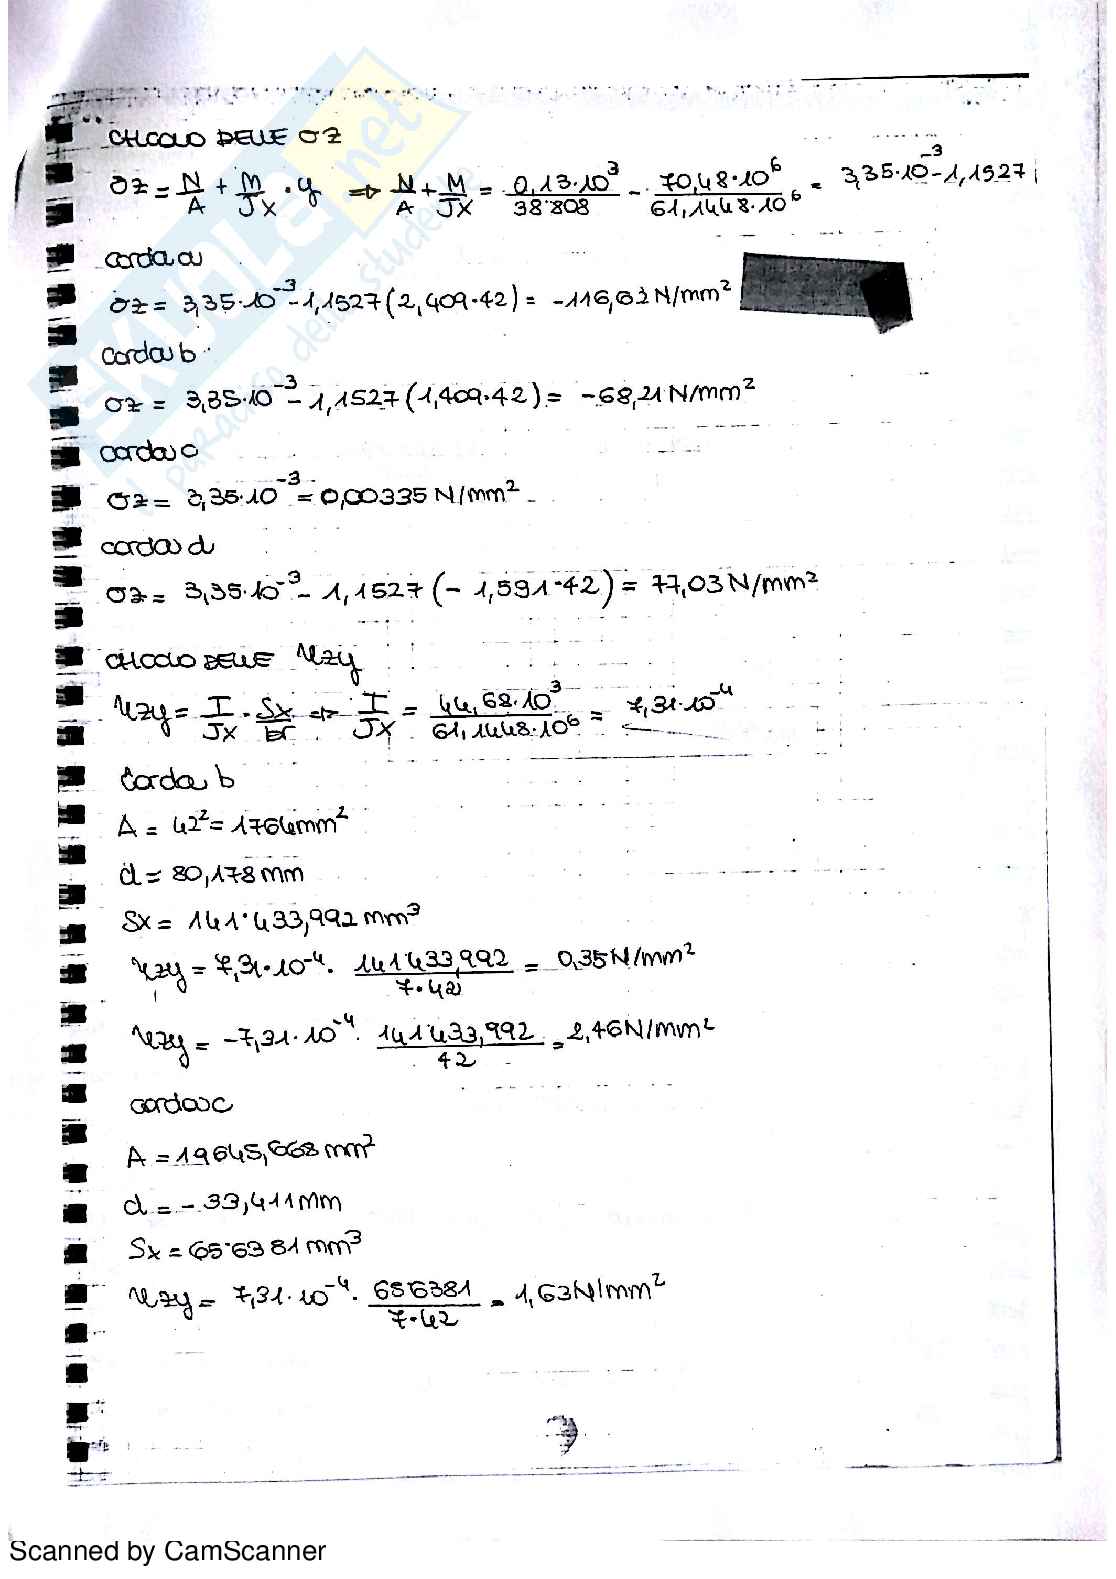 CALCOLO DELLE σz
σz = N/A + M/Jx · y ⇒ N/A + M/Jx = 0,13·10³/38'808 - 70,48·10⁶/61,1448·10⁶ = 3,35·10⁻³-1,1527;
corda a
σz = 3,35·10⁻³-1,1527(2,409·42) = -116,62 N/mm²
corda b
σz = 3,35·10⁻³-1,1527(1,409·42) = -68,21 N/mm²
corda c
σz = 3,35·10⁻³ = 0,00335 N/mm²
corda d
σz = 3,35·10⁻³-1,1527(-1,591·42) = 77,03 N/mm²
CALCOLO DELLE τzy
τzy = T/Jx · Sx/br ⇒ T/Jx = 44,68·10³/61,1448·10⁶ = 7,31·10⁻⁴
Corda b
A = 42² = 1764mm²
d = 80,178 mm
Sx = 141'433,992 mm³
τzy = 7,31·10⁻⁴ · 141433,992/7·42 = 0,35 N/mm²
τzy = -7,31·10⁻⁴ · 141433,992/42 = 2,46 N/mm²
corda c
A = 19645,668 mm²
d = -33,411 mm
Sx = 656381 mm³
τzy = 7,31·10⁻⁴ · 656381/7·42 = 1,63 N/mm²
SKUOLA.net
il paradiso dello studente
Scanned by CamScanner